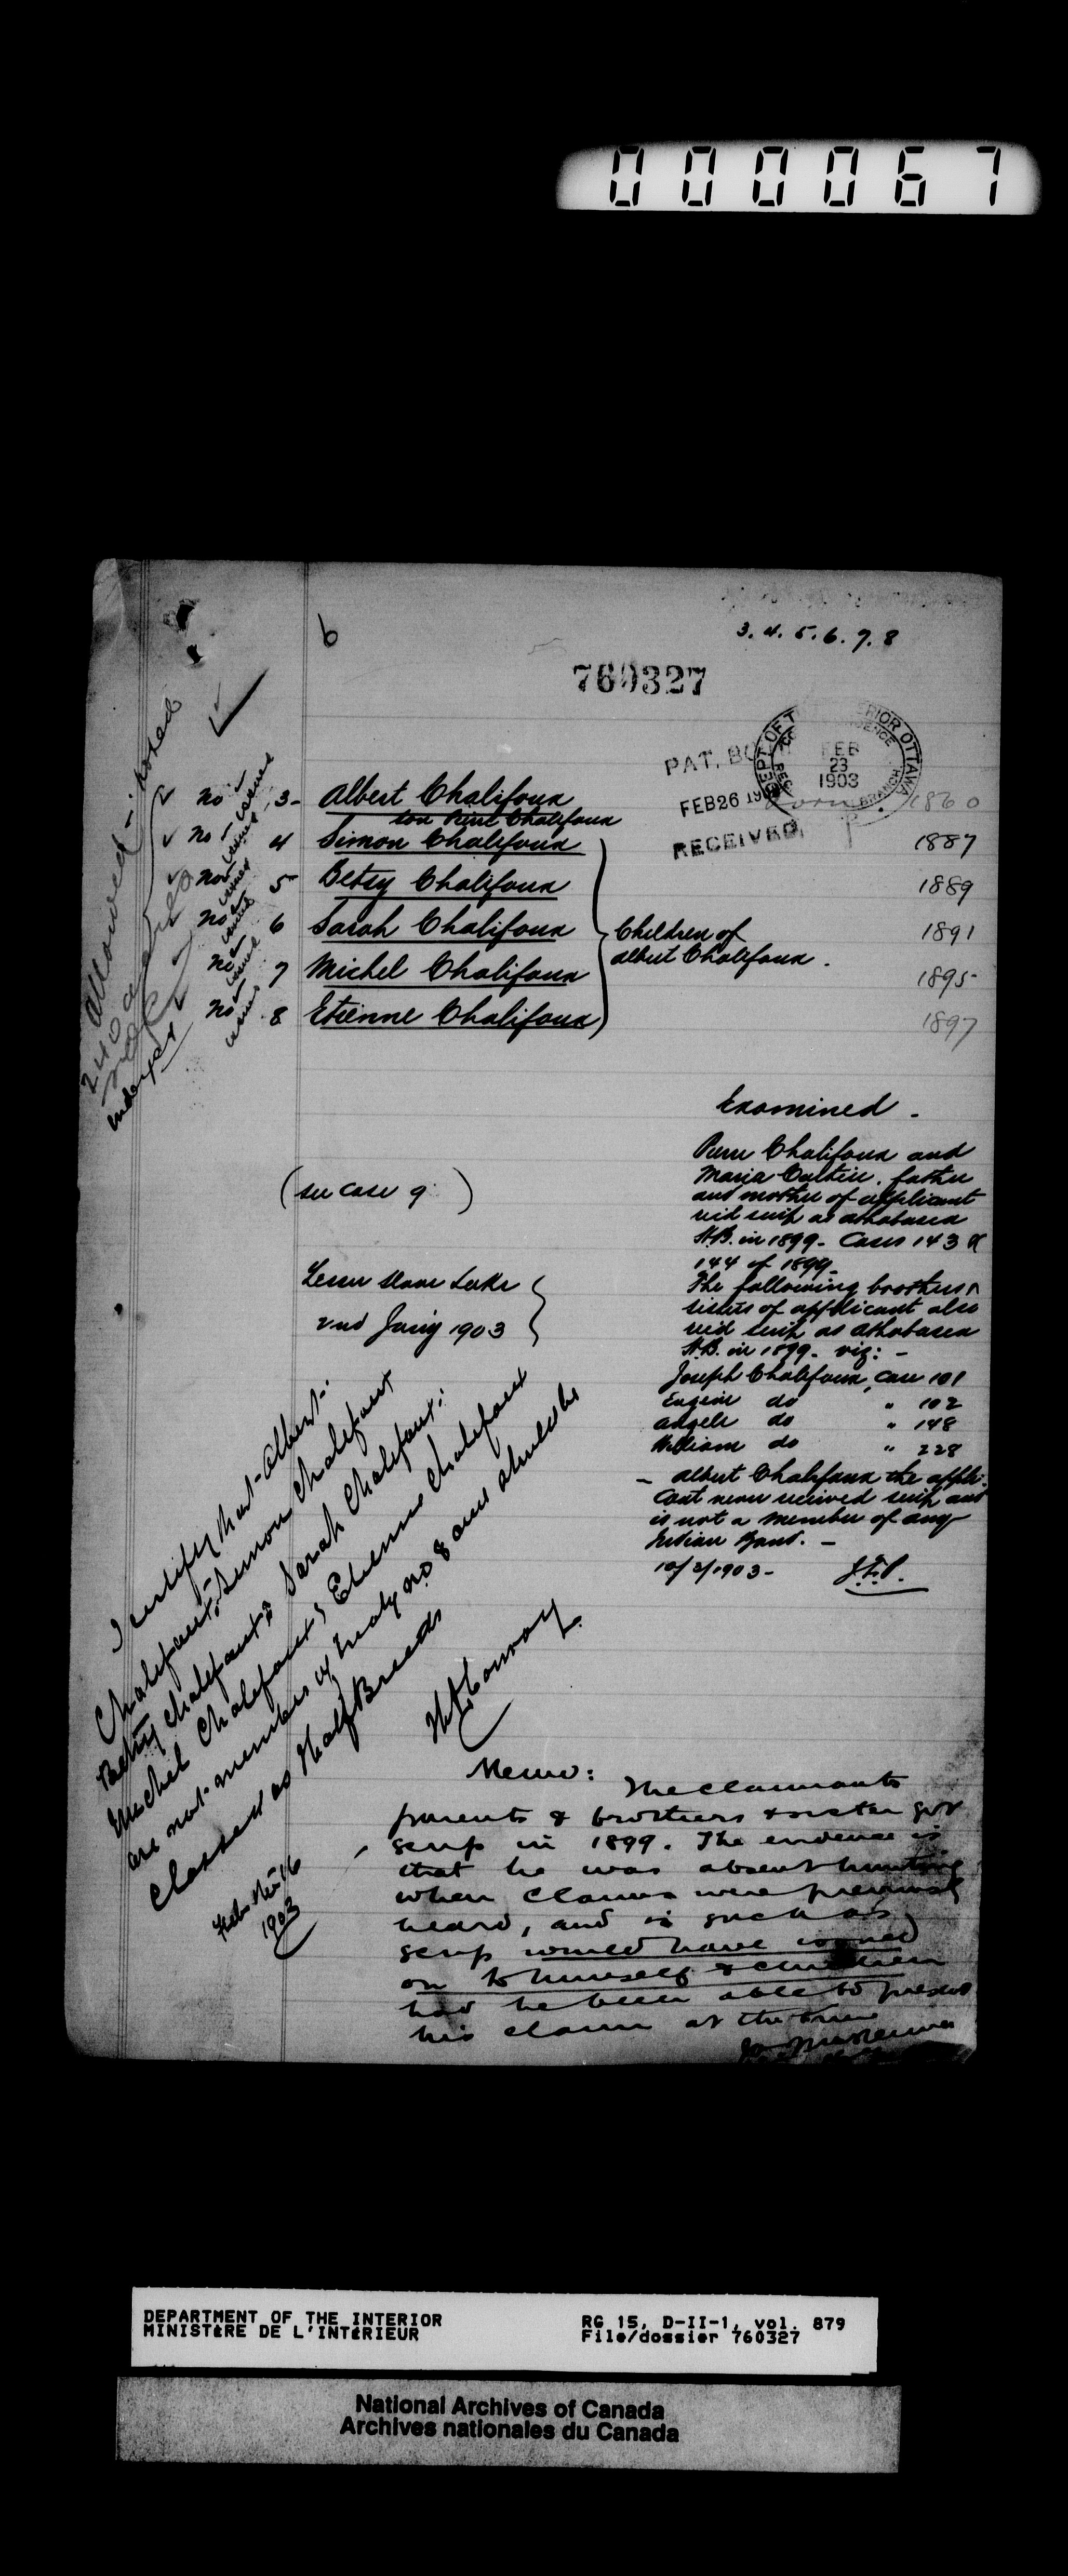 000067
6
3. 4. 5. 6. 7. 8
760327
DEPT OF THE INTERIOR OTTAWA
FEB
23
1903
PAT.
FEB 26 19
RECEIVED
Allowed - noted
240 acres
No issue 3 - Albert Chalifoux born 1860
son Pierre Chalifoux
No issue 4 Simon Chalifoux 1887
No issue 5 Betsy Chalifoux 1889
No issue 6 Sarah Chalifoux 1891
Children of
Albert Chalifoux.
No issue 7 Michel Chalifoux 1895
No issue 8 Etienne Chalifoux 1897
Examined -
Pierre Chalifoux and
Maria, father
and mother of applicant
rec'd scrip as Athabasca
H.B. in 1899 - Cases 143 &
144 of 1899 -
(see case 9)
The following brothers &
sisters of applicant also
rec'd scrip as Athabasca
H.B. in 1899 - viz: -
Lesser Slave Lake
2nd 1903
Joseph Chalifoux, Case 101
Eugene do " 102
Angele do " 148
William do " 228
- Albert Chalifoux the appli-
cant never received scrip and
is not a member of any
Indian Band. -
10/2/1903 - J.F.P.
I certify that Albert
Chalifoux, Simon Chalifoux
Betsy Chalifoux, Sarah Chalifoux,
Michel Chalifoux, Etienne Chalifoux
are not members of Treaty no 8 and should be
classed as Half Breeds
H A Conroy
1903
Memo: The claimants
parents & brothers & sister got
scrip in 1899. The evidence is
that he was absent hunting
when claims were previously
heard, and as such
scrip would have issued
on to himself & children
had he been able to present
his claim at the time
DEPARTMENT OF THE INTERIOR
MINISTÈRE DE L'INTÉRIEUR
RG 15, D-II-1, vol. 879
File/dossier 760327
National Archives of Canada
Archives nationales du Canada